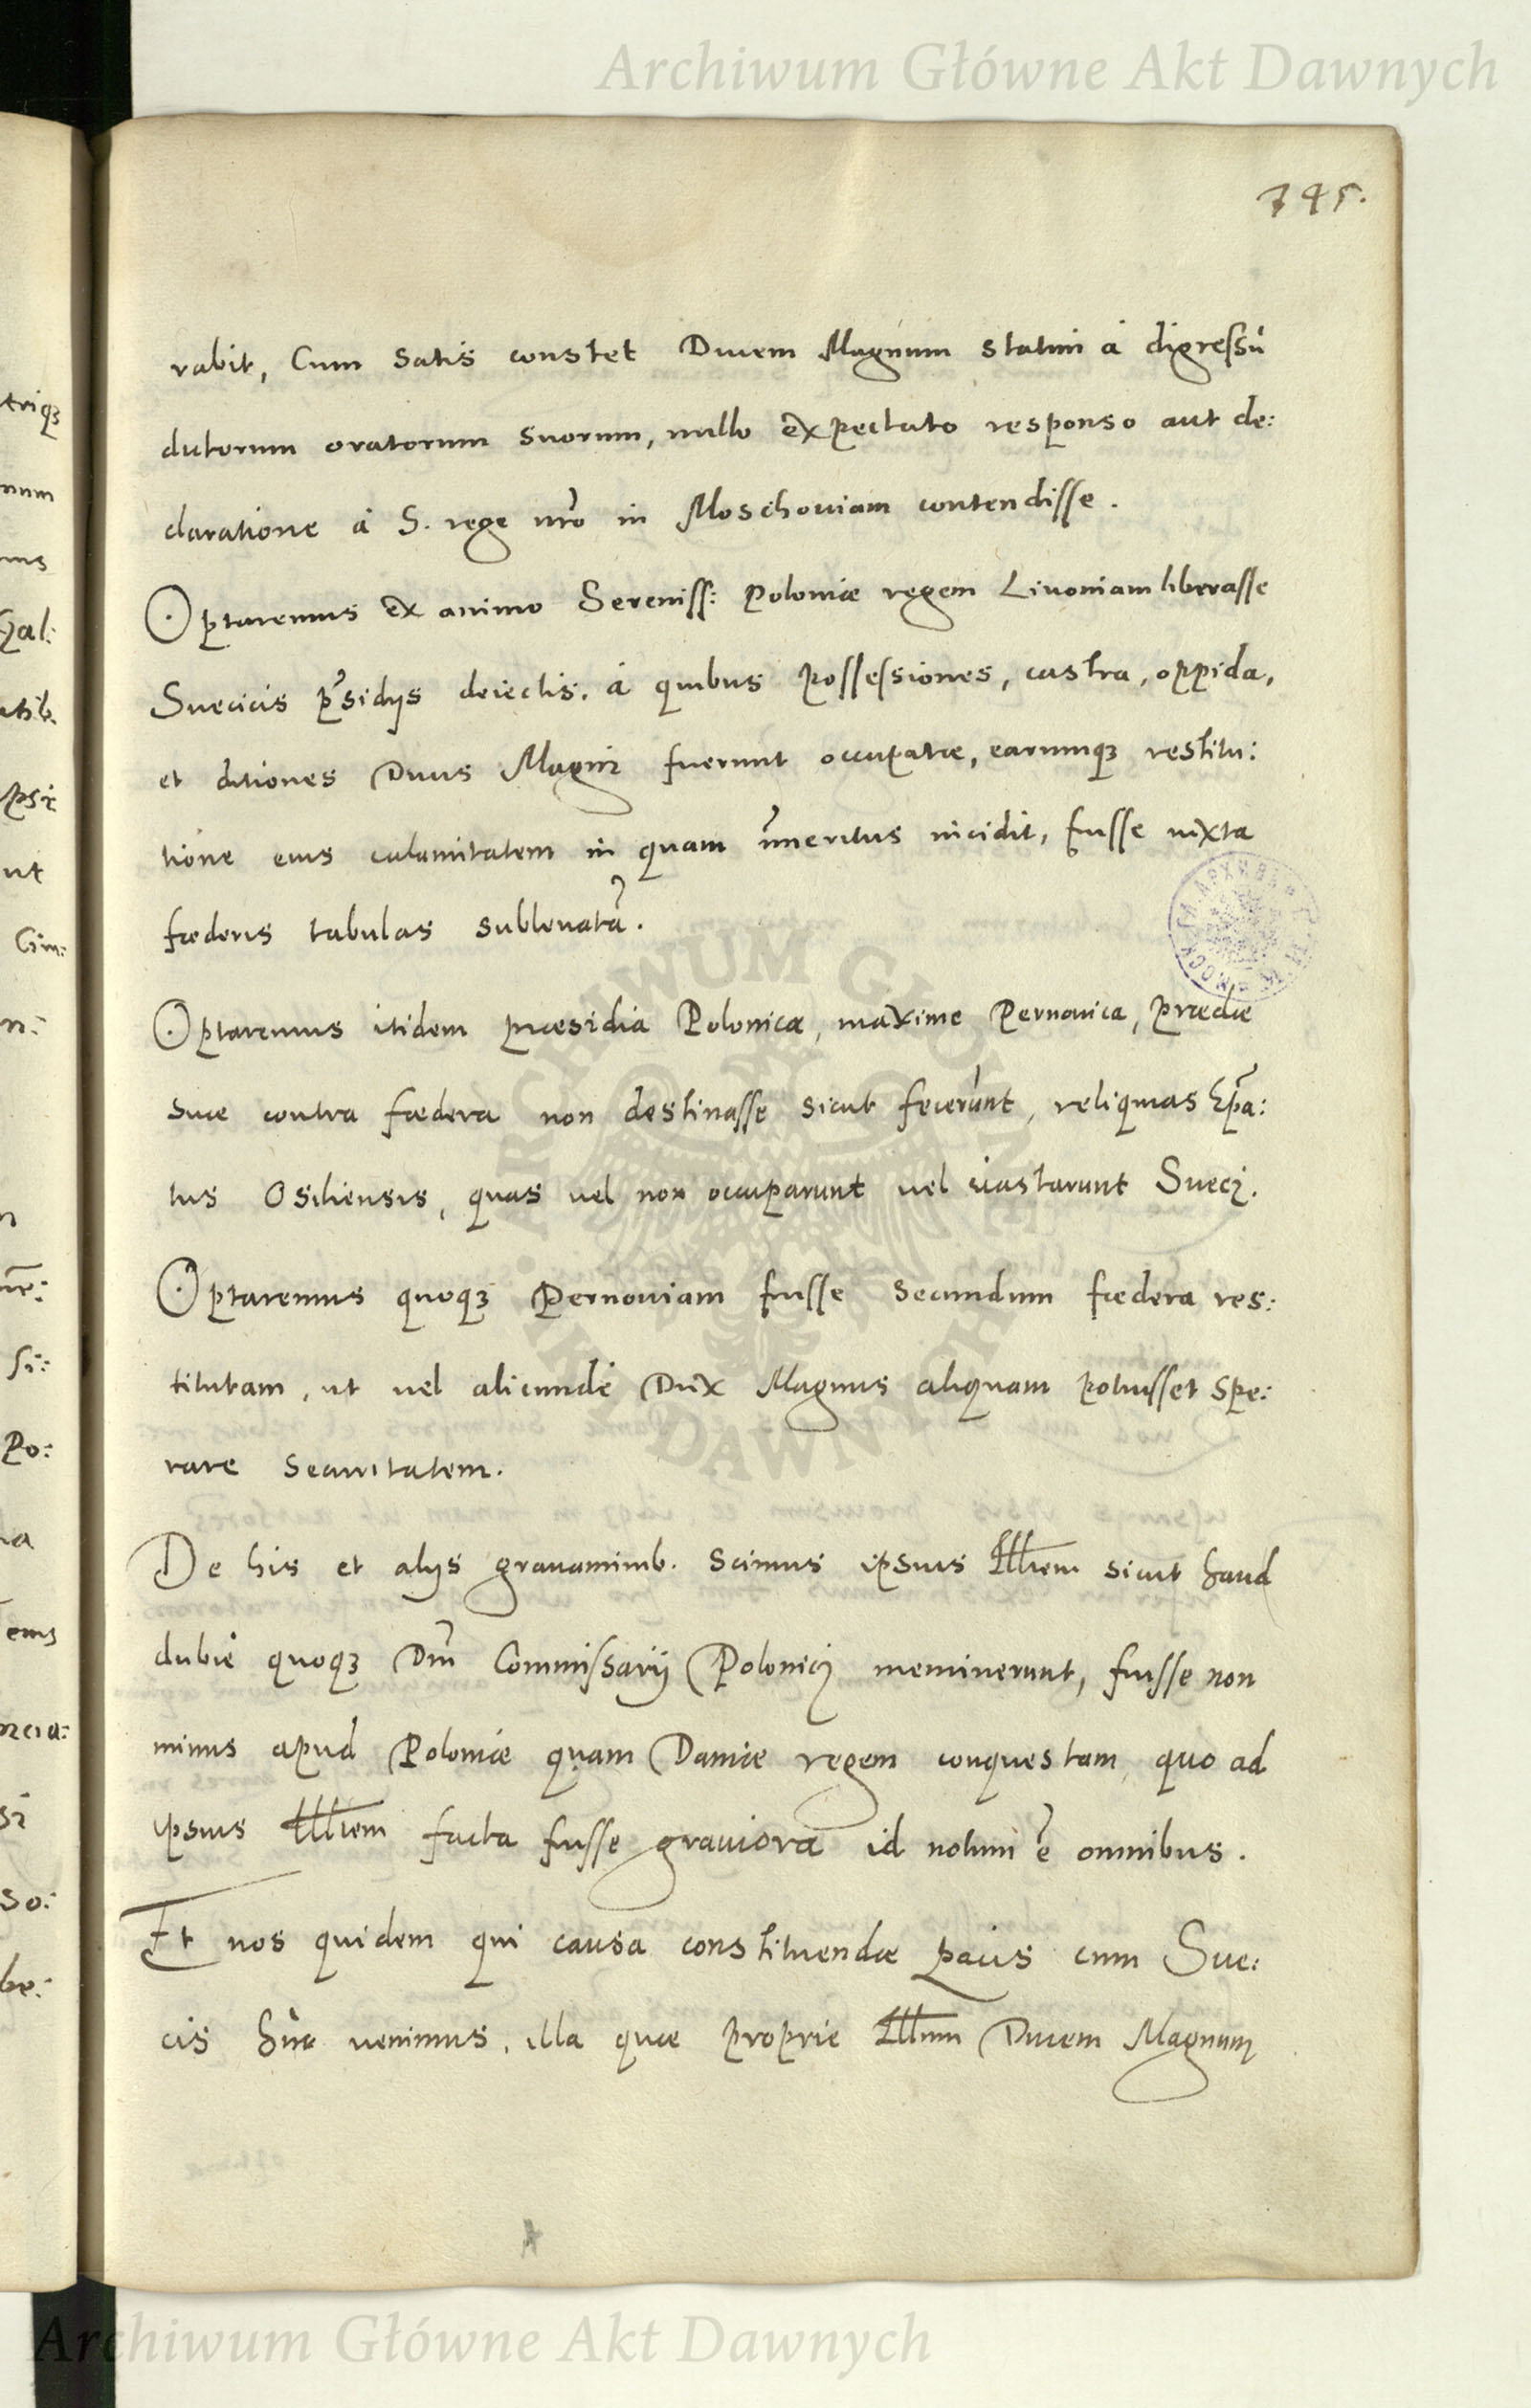 Archiwum Główne Akt Dawnych
745.
rabit, Cum satis constet Ducem Magnum statim à digressù
ductorum oratorum suorum, nullo expectato responso aut de:
claratione à S. rege nrõ in Moschouiam contendisse.
Optaremus ex animo Sereniss: Poloniæ regem Liuoniam liberasse
Suecicis p̃sidijs deiectis, à quibus possessiones, castra, oppida,
et ditiones Ducis Magni fuerunt occupatæ, earumqȝ restitu:
tione eius calamitatem in quam ĩmeritus incidit, fuisse iuxta
fœderis tabulas subleuatã.
Optaremus itidem præsidia Polonica, maxime Pernouica, prædæ
suæ contra fœdera non destinasse sicut fecerùnt, reliquias Ep̃a:
tus Osiliensis, quas uel non occuparunt uel uastarunt Sueci.
Optaremus quoqȝ Pernouiam fuisse secundum fœdera res:
titutam, ut uel alicunde Dux Magnus aliquam potuisset spe:
rare securitatem.
De his et alijs grauaminib. scimus ipsius Illiem sicut haud
dubiè quoqȝ Dñi Commissarij Polonici meminerunt, fuisse non
minus apud Poloniæ quam Daniæ regem conquestam, quo ad
ipsius Illiem facta fuisse grauiora id notum ẽ omnibus.
Et nos quidem qui causa constituendæ pacis cum Sue:
cis hùc uenimus, illa quæ proprie Illum Ducem Magnum
Archiwum Główne Akt Dawnych